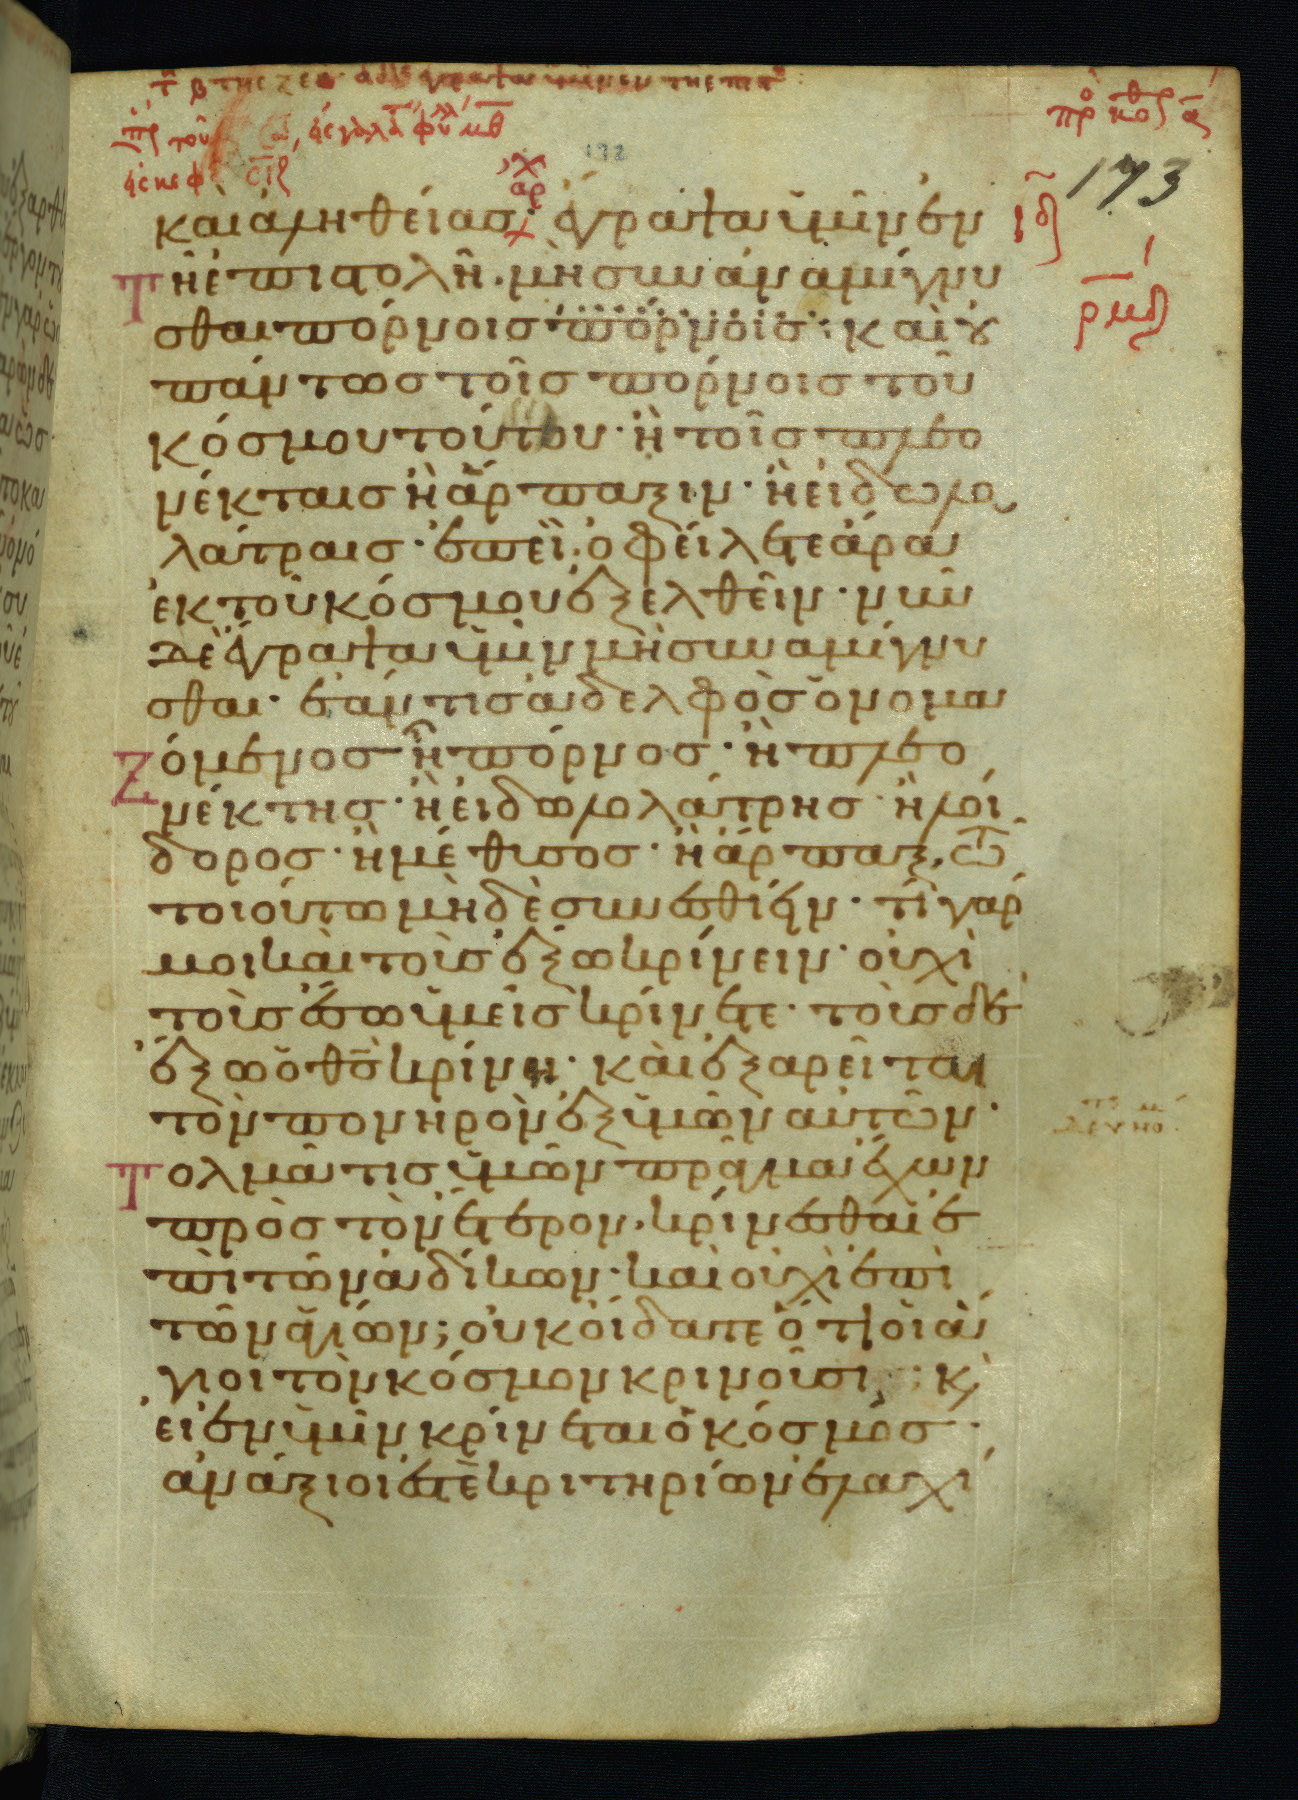 τῇ β τῆς ζ ἑβ ἀδελ ἔγραψα ὑμῖν ἐν τῇ ἐπιστ
172
173
ιδ
ρμδ
ἀρχ
καὶ ἀληθείας· ἔγραψα ὑμῖν ἐν
τῆ ἐπιστολῆ· μὴ συναναμίγνυ
σθαι πόρνοις πόρνοις· καὶ οὐ
πάντως τοῖς πόρνοις τοῦ
κόσμου τούτου· ἢ τοῖς πλεο
νέκταις ἢ ἅρπαξιν· ἢ εἰδωλο
λάτραις· ἐπεὶ ὀφείλετε ἄρα
ἐκ τοῦ κόσμου ἐξελθεῖν· νῦν
δὲ ἔγραψα ὑμῖν μὴ συναμίγνυ
σθαι· ἐάν τις ἀδελφὸς ὀνομα
ζόμενος ἢ πόρνος· ἢ πλεο
νέκτης· ἢ εἰδωλολάτρης· ἢ λοί
δορος· ἢ μέθυσος· ἢ ἅρπαξ, τῶ
τοιούτω μηδὲ συνεσθίειν· τί γάρ
μοι καὶ τοὺς ἔξω κρίνειν· οὐχὶ
τοὺς ἔσω ὑμεῖς κρίνετε· τοὺς δὲ
ἔξω ὁ θς κρίνει· καὶ ἐξαρεῖται
τὸν πονηρὸν ἐξ ὑμῶν αὐτῶν·
Τολμᾶ τις ὑμῶν πρᾶγμα ἔχων
πρὸς τὸν ἕτερον, κρίνεσθαι ἐ
πὶ τῶν ἀδίκων· καὶ οὐχὶ ἐπὶ
τῶν ἁγίων; οὐκ οἴδατε ὅτι οἱ ἅ
γιοι τὸν κόσμον κρινοῦσι· κὶ
εἰ ἐν ὑμῖν κρίνεται ὁ κόσμος·
ἀνάξιοί ἐστε κριτηρίων ἐλαχί